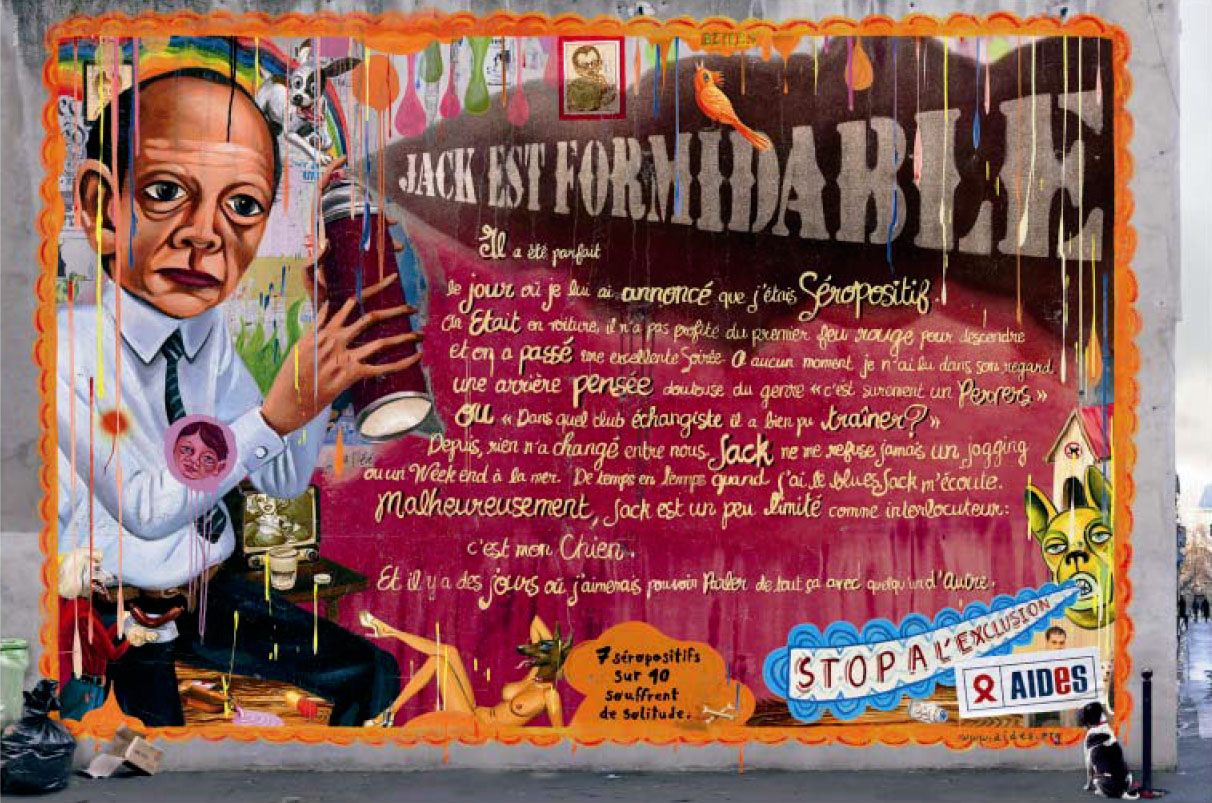 JACK EST FORMIDABLE
Il a été parfait
le jour où je lui ai annoncé que j'étais Séropositif.
On Etait en voiture, il n'a pas profité du premier feu rouge pour descendre
et on a passé une excellente Soirée. A aucun moment je n'ai lu dans son regard
une arrière pensée douteuse du genre « c'est surement un Pervers »
ou « Dans quel club échangiste il a bien pu traîner? »
Depuis, rien n'a changé entre nous. Jack ne me refuse jamais un jogging
ou un Week end à la mer. De temps en temps quand j'ai le blues Jack m'écoute.
Malheureusement, Jack est un peu limité comme interlocuteur:
c'est mon Chien.
Et il y a des jours où j'aimerais pouvoir Parler de tout ça avec quelqu'un d'Autre.
7 séropositifs
sur 10
souffrent
de solitude.
STOP A L'EXCLUSION
AIDES
www.aides.org